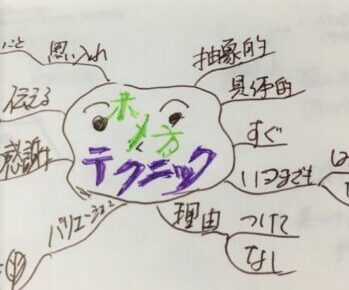 ホメ方
テクニック
抽象的
具体的
すぐ
いつまでも
理由
つけて
なし
思い入れ
伝える
感謝
バリエーション
こと
は